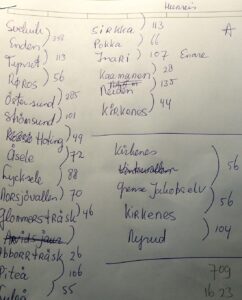 Hussein
A
Svelvik
Enden ) 298
Tynset ) 113
Røros ) 56
Östersund ) 285
Strömsund ) 101
Hoting ) 49
Åsele ) 72
Lycksele ) 88
Norsjövallen ) 70
Glommersträsk ) 46
Arvidsjaur
Abborrträsk 26
Piteå ) 106
) 55
Sirkka ) 113
Pokka ) 66
Inari ) 107 Enare
Kaamanen ) 28
Neiden ) 135
Kirkenes ) 44
Kirkenes
Grense Jakobselv ) 56
Kirkenes ) 56
Nyrud ) 104
709
16.23